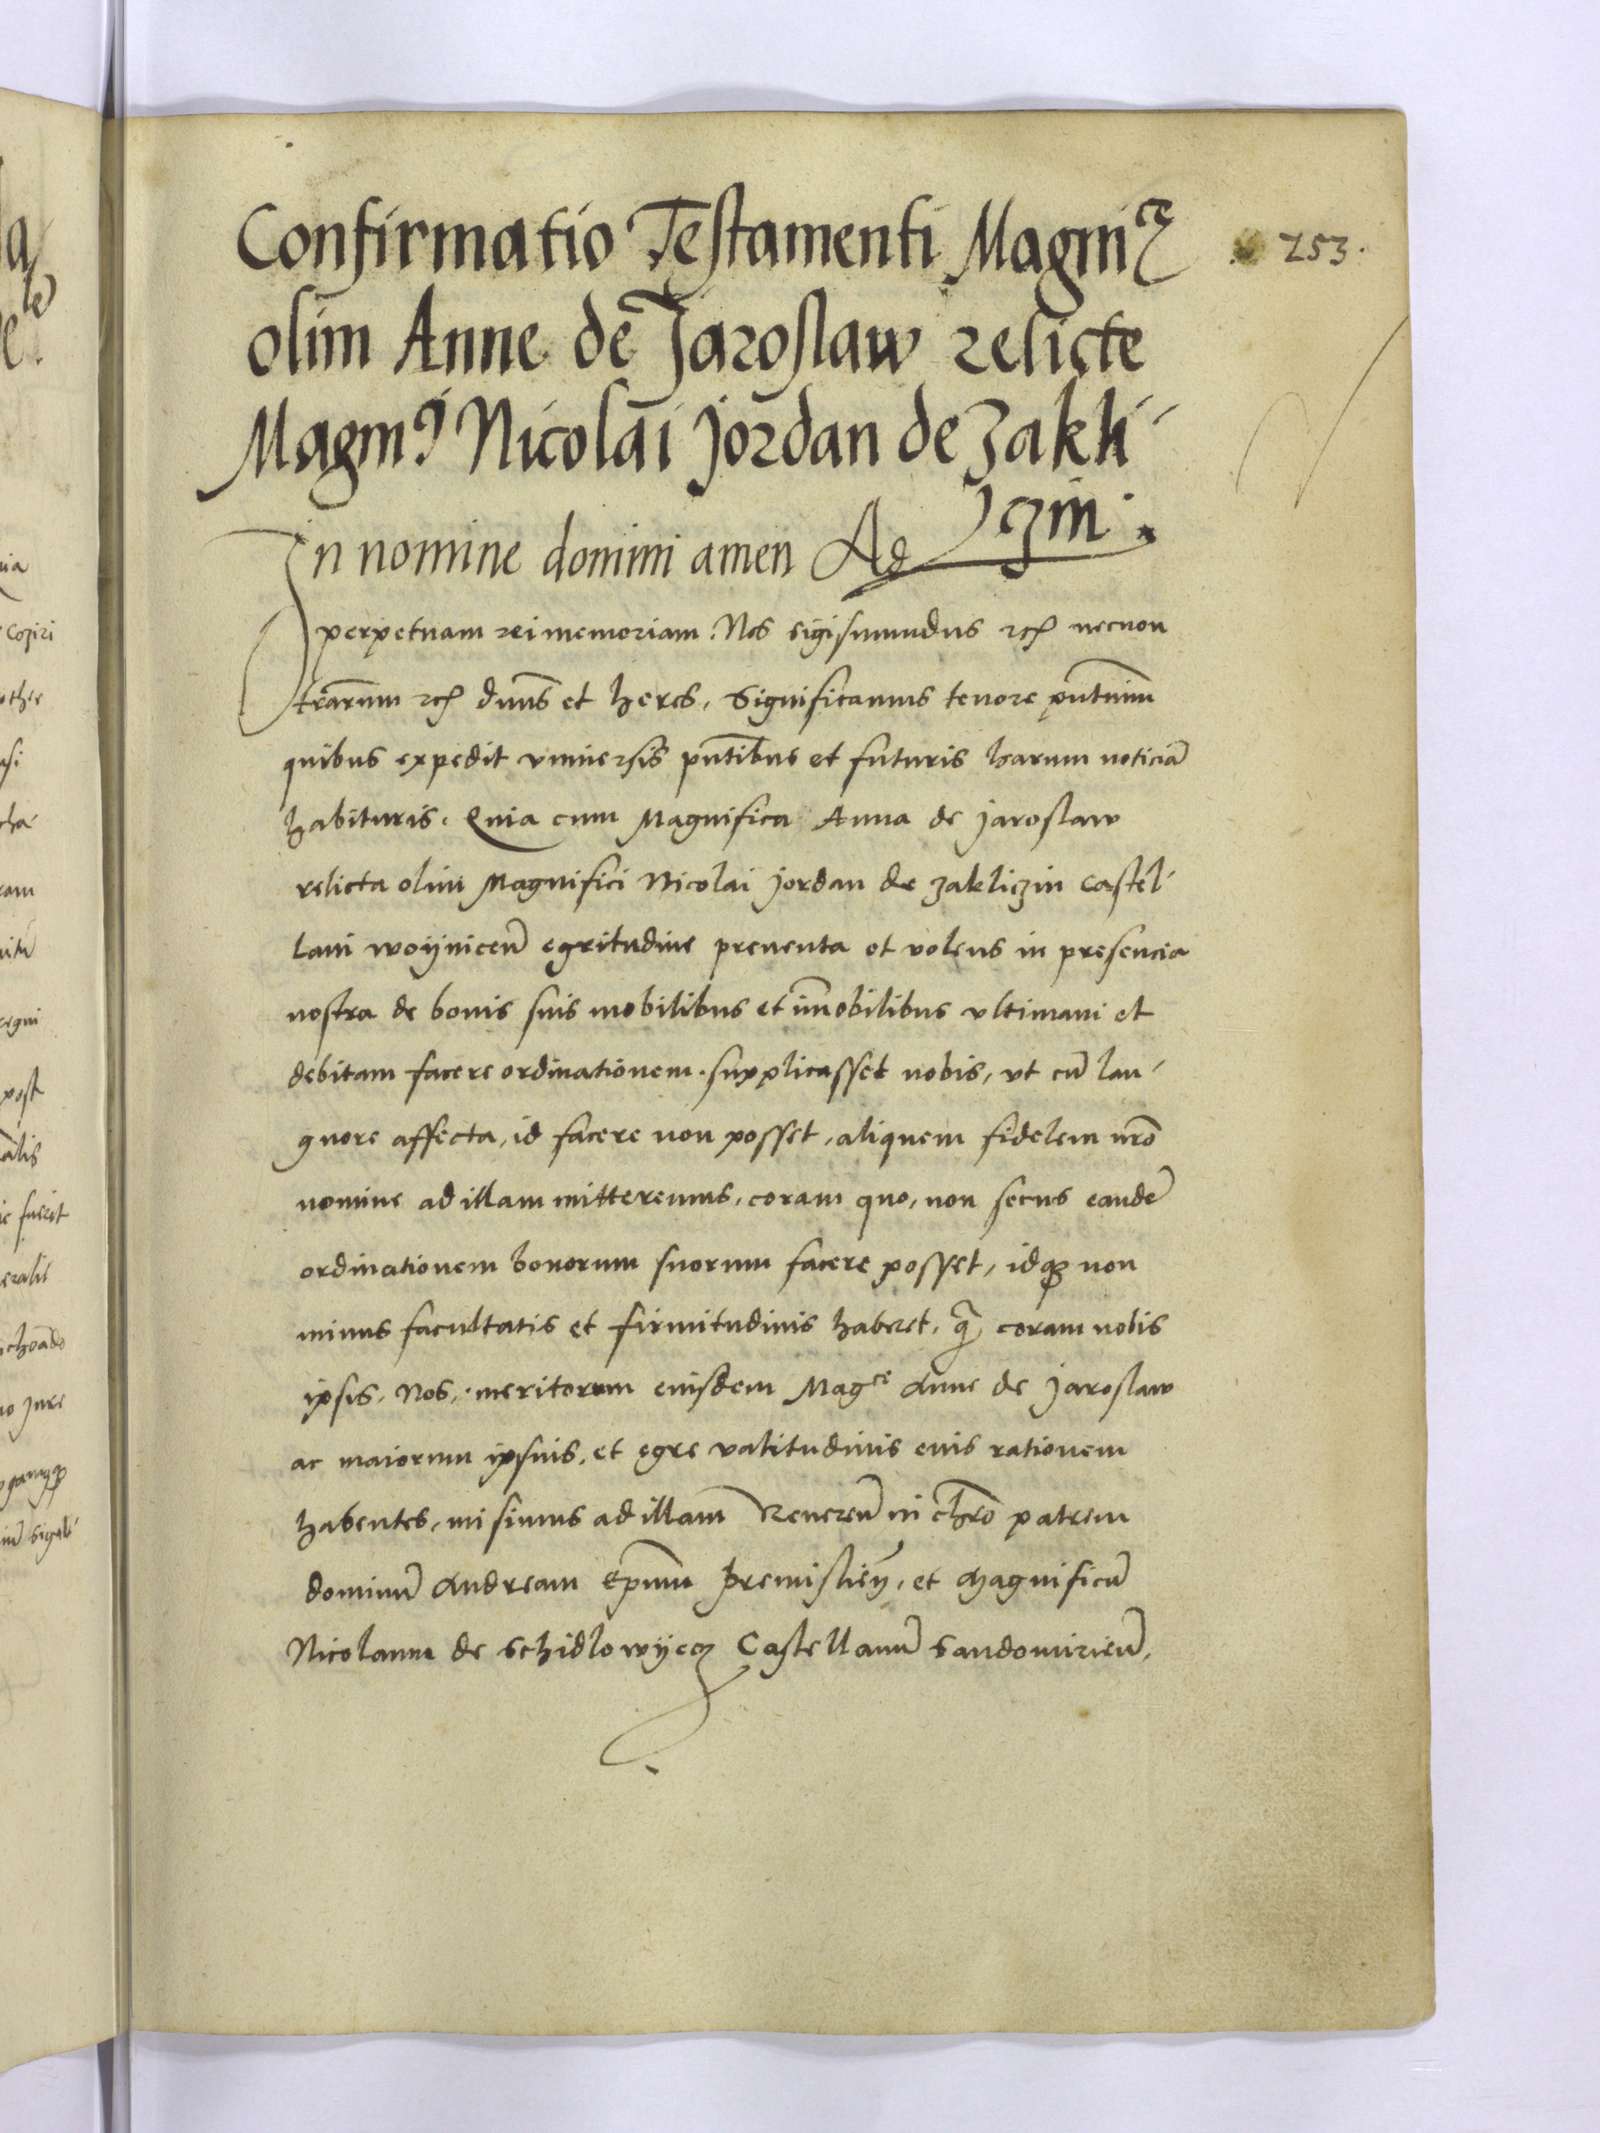 Confirmatio Testamenti Magnice
253.
olim Anne de Jaroslaw relicte
Magnci Nicolai Jordan de Zakli
czin.
In nomine domini amen Ad
perpetuam rei memoriam. Nos Sigismundus rex necnon
trarum rex dnus et heres, Significamus tenore pntium
quibus expedit vniuersis pntibus et futuris harum noticia
habituris. Quia cum Magnifica Anna de Jaroslaw
relicta olim Magnifici Nicolai Jordan de zakliczin Castel
lani woyniceñ egritudine preuenta et volens in presencia
nostra de bonis suis mobilibus et imobilibus vltimam et
debitam facere ordinationem. supplicasset nobis, vt cu lan
guore affecta, id facere non posset, aliquem fidelem nro
nomine ad illam mitteremus, coram quo, non secus eande
ordinationem bonorum suorum facere posset, idq non
minus facultatis et firmitudinis haberet, qa coram nobis
ipsis, Nos, meritorum eiusdem Magce Anne de Jaroslaw
ac maiorum ipsius, et egre valitudinis eius rationem
habentes, misimus ad illam Reuereñ in chro patrem
dominu Andream Epum Premislieñ, et Magnificu
Nicolaum de Schidlowyecz Castellanu Sandomirieñ,